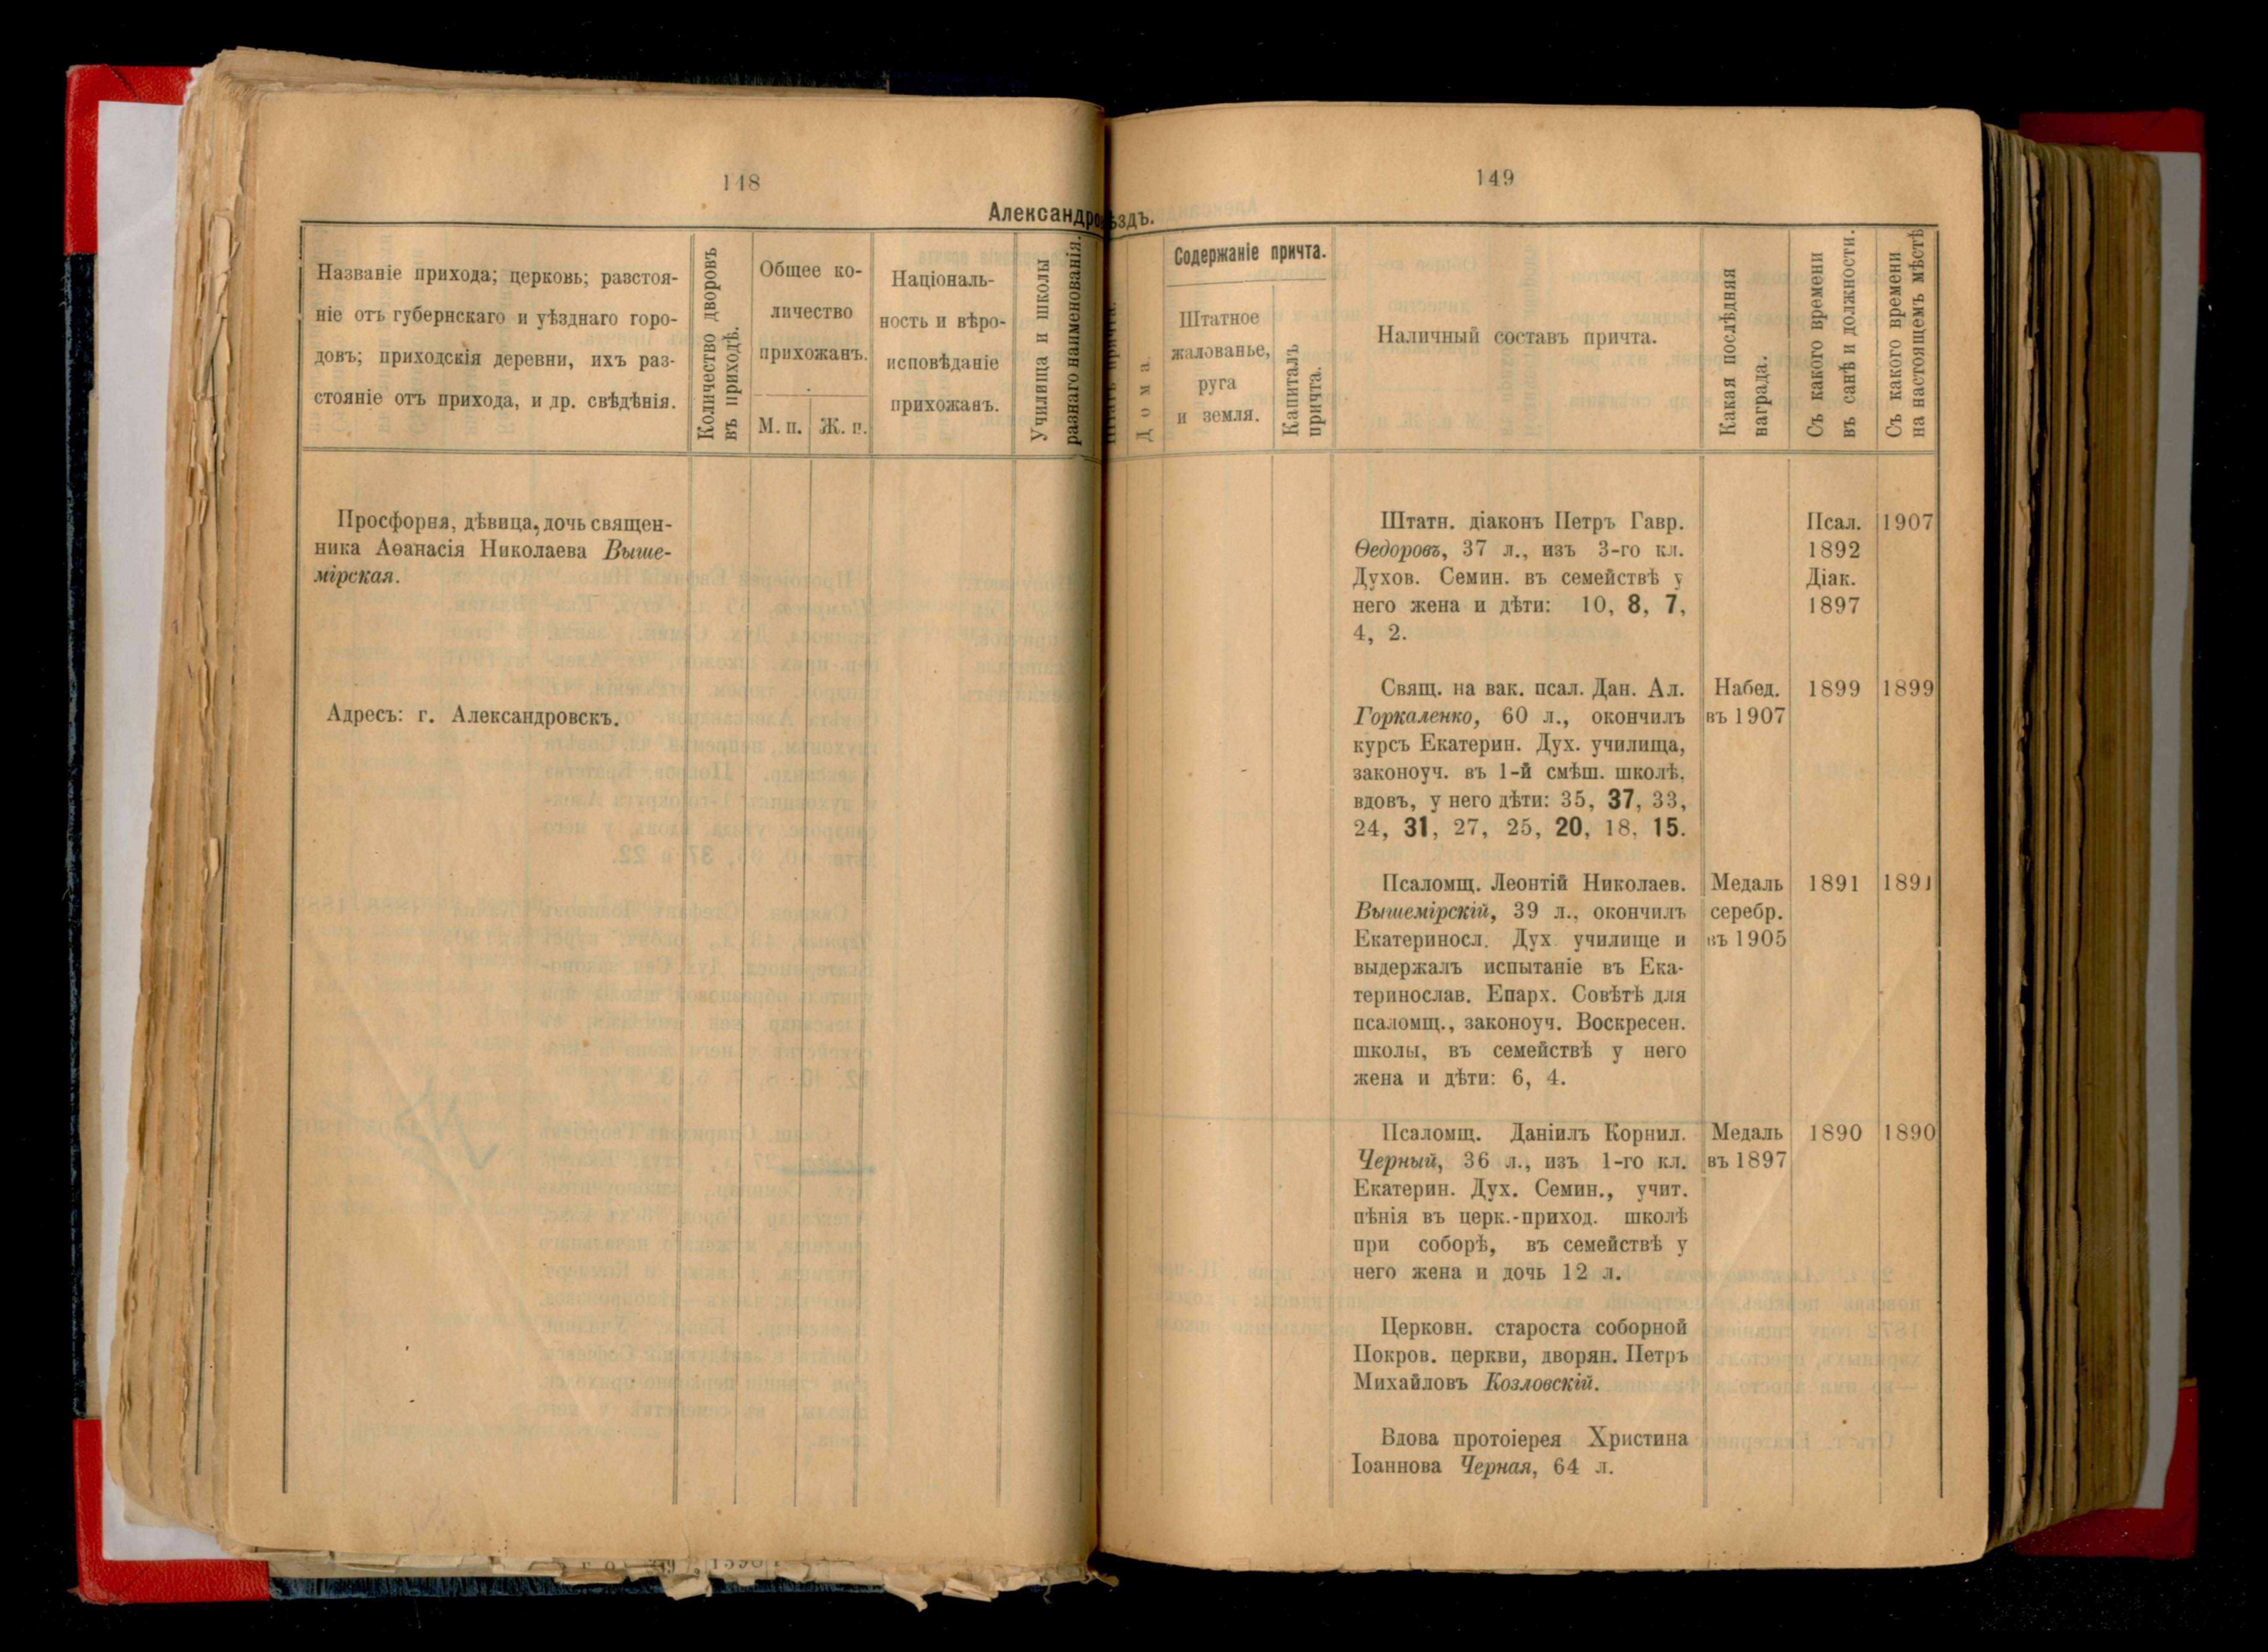 118
Александров
Названіе прихода; церковь; разстоя-
ніе отъ губернскаго и уѣзднаго горо-
довъ; приходскія деревни, ихъ раз-
стояніе отъ прихода, и др. свѣдѣнія.
Количество дворовъ
въ приходѣ.
Общее ко-
личество
прихожанъ.
М. п.
Ж. п.
Національ-
ность и вѣро-
исповѣданіе
прихожанъ.
Училища и школы
разнаго наименованія.
Просфорня, дѣвица, дочь священ-
ника Аѳанасія Николаева Выше-
мірская.
Адресъ: г. Александровскъ.
149
ѣздъ.
причта.
Дома.
Содержаніе причта.
Штатное
жалованье,
руга
и земля.
Капиталъ
причта.
Наличный составъ причта.
Какая послѣдняя
награда.
Съ какого времени
въ санѣ и должности.
Съ какого времени
на настоящемъ мѣстѣ
Штатн. діаконъ Петръ Гавр.
Ѳедоровъ, 37 л., изъ 3-го кл.
Духов. Семин. въ семействѣ у
него жена и дѣти: 10, 8, 7,
4, 2.
Псал.
1892
Діак.
1897
1907
Свящ. на вак. псал. Дан. Ал.
Горкаленко, 60 л., окончилъ
курсъ Екатерин. Дух. училища,
законоуч. въ 1-й смѣш. школѣ,
вдовъ, у него дѣти: 35, 37, 33,
24, 31, 27, 25, 20, 18, 15.
Набед.
въ 1907
1899
1899
Псаломщ. Леонтій Николаев.
Вышемірскій, 39 л., окончилъ
Екатериносл. Дух училище и
выдержалъ испытаніе въ Ека-
теринослав. Епарх. Совѣтѣ для
псаломщ., законоуч. Воскресен.
школы, въ семействѣ у него
жена и дѣти: 6, 4.
Медаль
серебр.
въ 1905
1891
1891
Псаломщ. Даніилъ Корнил.
Черный, 36 л., изъ 1-го кл.
Екатерин. Дух. Семин., учит.
пѣнія въ церк.-приход. школѣ
при соборѣ, въ семействѣ у
него жена и дочь 12 л.
Медаль
въ 1897
1890
1890
Церковн. староста соборной
Покров. церкви, дворян. Петръ
Михайловъ Козловскій.
Вдова протоіерея Христина
Іоаннова Черная, 64 л.